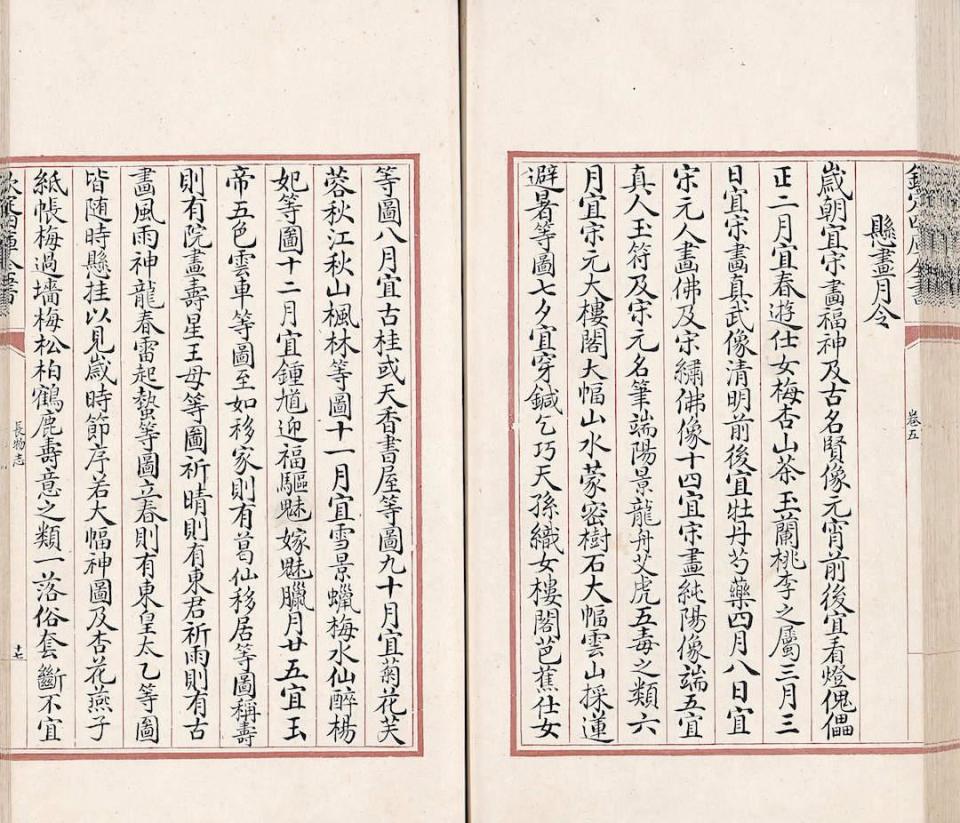 欽定四庫全書
懸畫月令
歲朝宜宋畫福神及古名賢像元宵前後宜看燈傀儡
正二月宜春遊仕女梅杏山茶玉蘭桃李之屬三月三
日宜宋畫真武像清明前後宜牡丹芍藥四月八日宜
宋元人畫佛及宋繡佛像十四宜宋畫純陽像端五宜
真人玉符及宋元名筆端陽景龍舟艾虎五毒之類六
月宜宋元大樓閣大幅山水蒙密樹石大幅雲山採蓮
避暑等圖七夕宜穿鍼乞巧天孫織女樓閣芭蕉仕女
卷五
等圖八月宜古桂或天香書屋等圖九十月宜菊花芙
蓉秋江秋山楓林等圖十一月宜雪景蠟梅水仙醉楊
妃等圖十二月宜鍾馗迎福驅魅嫁魅臘月廿五宜玉
帝五色雲車等圖至如移家則有葛仙移居等圖稱壽
則有院畫壽星王母等圖祈晴則有東君祈雨則有古
畫風雨神龍春雷起蟄等圖立春則有東皇太乙等圖
皆随時懸挂以見歲時節序若大幅神圖及杏花燕子
紙帳梅過墻梅松柏鶴鹿壽意之類一落俗套斷不宜
欽定四庫全書
長物志
十七